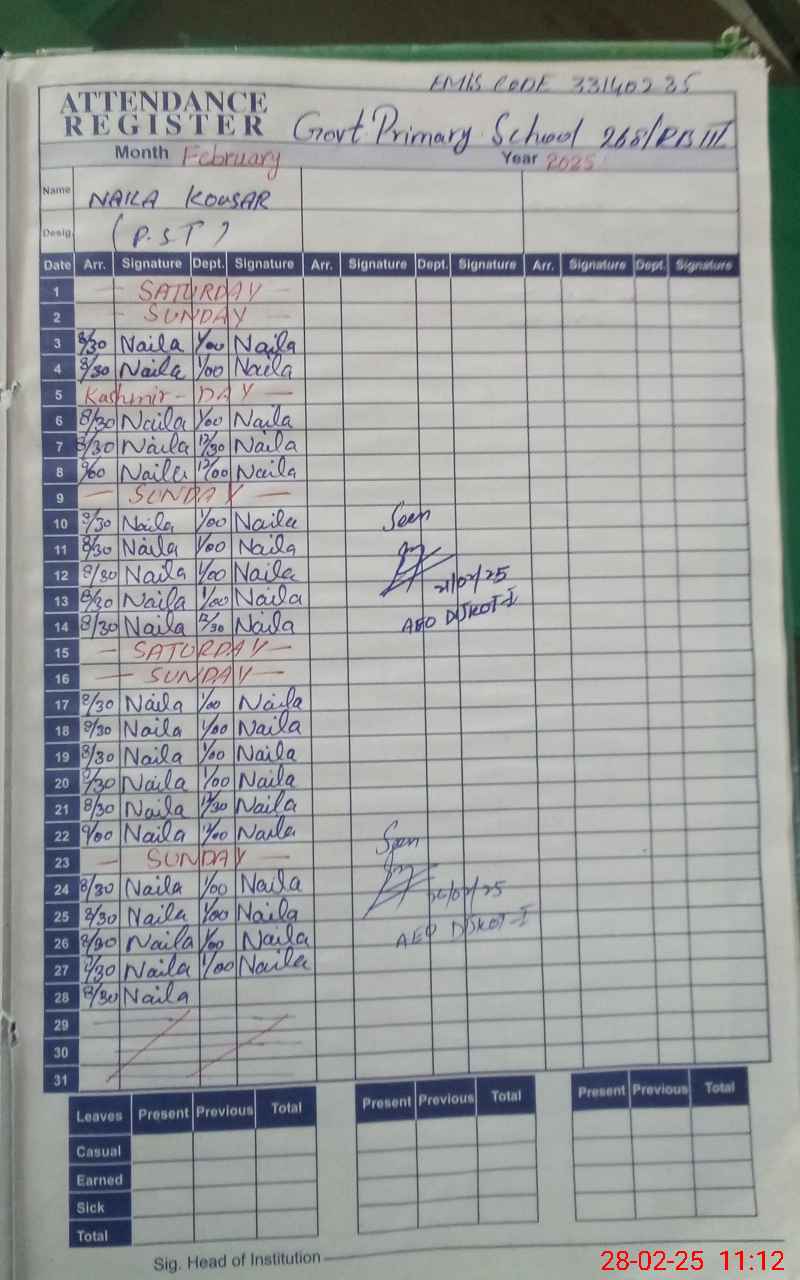 EMIS CODE 33140235
ATTENDANCE
REGISTER Govt Primary School 268/RB III
Month February Year 2025
Name NAILA KOUSAR
Desig. (P.S.T)
Date Arr. Signature Dept. Signature Arr. Signature Dept. Signature Arr. Signature Dept. Signature
1 — SATURDAY —
2 — SUNDAY —
3 8/30 Naila 1/00 Naila
4 8/30 Naila 1/00 Naila
5 Kashmir - DAY —
6 8/30 Naila 1/00 Naila
7 8/30 Naila 12/30 Naila
8 9/00 Naila 12/00 Naila
9 — SUNDAY —
10 8/30 Naila 1/00 Naila Seen
11 8/30 Naila 1/00 Naila
12 8/30 Naila 1/00 Naila 21/02/25
13 8/30 Naila 1/00 Naila
14 8/30 Naila 12/30 Naila AEO DIJKOT-I
15 — SATURDAY —
16 — SUNDAY —
17 8/30 Naila 1/00 Naila
18 8/30 Naila 1/00 Naila
19 8/30 Naila 1/00 Naila
20 8/30 Naila 1/00 Naila
21 8/30 Naila 12/30 Naila
22 9/00 Naila Naila Seen
23 — SUNDAY —
24 8/30 Naila 1/00 Naila
25 8/30 Naila 1/00 Naila
26 8/30 Naila 1/00 Naila AEO DIJKOT-I
27 8/30 Naila 1/00 Naila
28 8/30 Naila
29
30
31
Leaves Present Previous Total Present Previous Total Present Previous Total
Casual
Earned
Sick
Total
Sig. Head of Institution
28-02-25 11:12